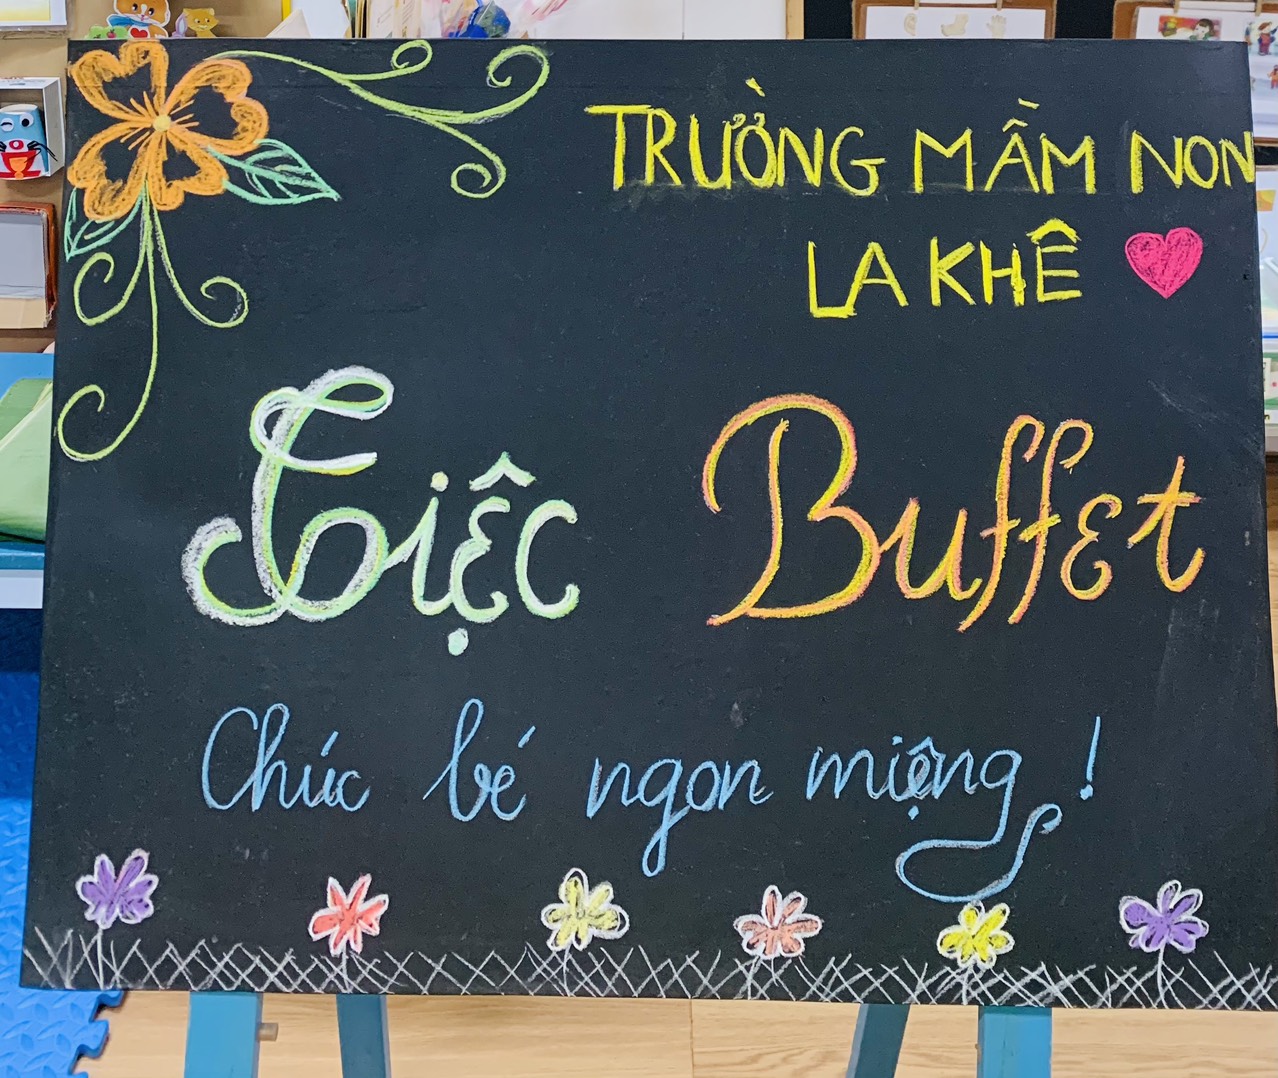 TRƯỜNG MẦM NON
LA KHÊ
Tiệc Buffet
Chúc bé ngon miệng!